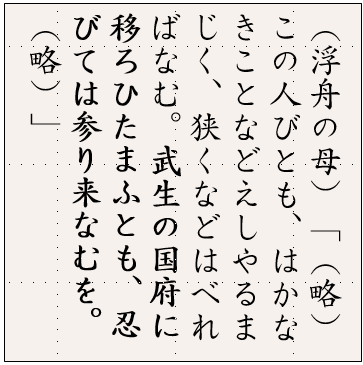 （浮舟の母）「（略）
この人びとも、はかな
きことなどえしやるま
じく、狭くなどはべれ
ばなむ。武生の国府に
移ろひたまふとも、忍
びては参り来なむを。
（略）」